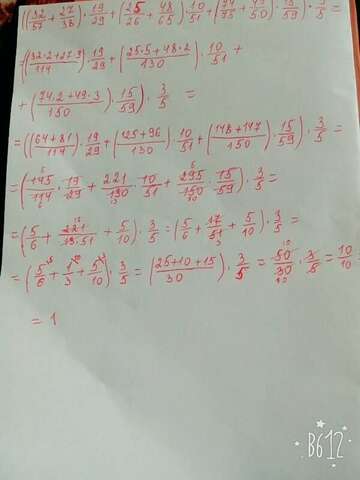 ((32/57 + 27/38) · 19/29 + (25/26 + 48/65) · 10/51 + (74/75 + 49/50) · 15/59) · 3/5 =
= ((32·2+27·3)/114) · 19/29 + ((25·5+48·2)/130) · 10/51 +
+ ((74·2+49·3)/150) · 15/59) · 3/5 =
= ((64+81)/114) · 19/29 + ((125+96)/130) · 10/51 + ((148+147)/150) · 15/59) · 3/5 =
= (145/114 · 19/29 + 221/130 · 10/51 + 295/150 · 15/59) · 3/5 =
= (5/6 + 221/13·51 + 5/10) · 3/5 = (5/6 + 17/51 + 5/10) · 3/5 =
= (5/6 + 1/3 + 5/10) · 3/5 = ((25+10+15)/30) · 3/5 = 50/30 · 3/5 = 10/10
= 1
B612